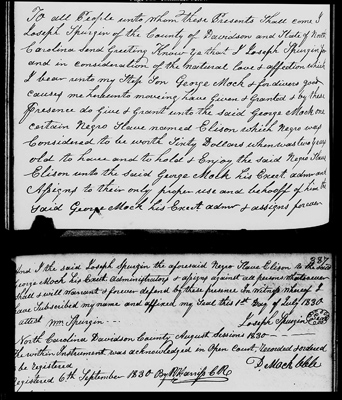 To all People unto whom these Presents Shall come I
Joseph Spurgin of the County of Davidson and State of North
Carolina Send Greeting Know ye that I Joseph Spurgin for
and in consideration of the natural love & affection which
I bear unto my Step Son George Mock & for divers good
causes me hereunto moveing have Given & Granted & by these
Presence do Give & Grant unto the said George Mock one
certain Negro Slave named Elison which Negro was
Considered to be worth Sixty Dollars when was two years
old to have and to hold & Enjoy the said Negro Slave
Elison unto the said George Mock his Exect admr and
Assigns to their only proper use and behooff of him the
said George Mock his Exect admr & assigns forever
337
And I the said Joseph Spurgin the aforesaid Negro Slave Elison to the said
George Mock his Exctr Administrators & assigns against all persons whatsoever
Shall & will warrant & forever defend by these presence In witness whereof I
have Subscribed my name and affixed my Seal this 1st Day of July 1830
attest Wm Spurgin Joseph Spurgin
North Carolina Davidson County August Sessions 1830
the within Instrument was acknowledged in Open Court, Recorded & ordered
be registered D Mock
registered 6th September 1830